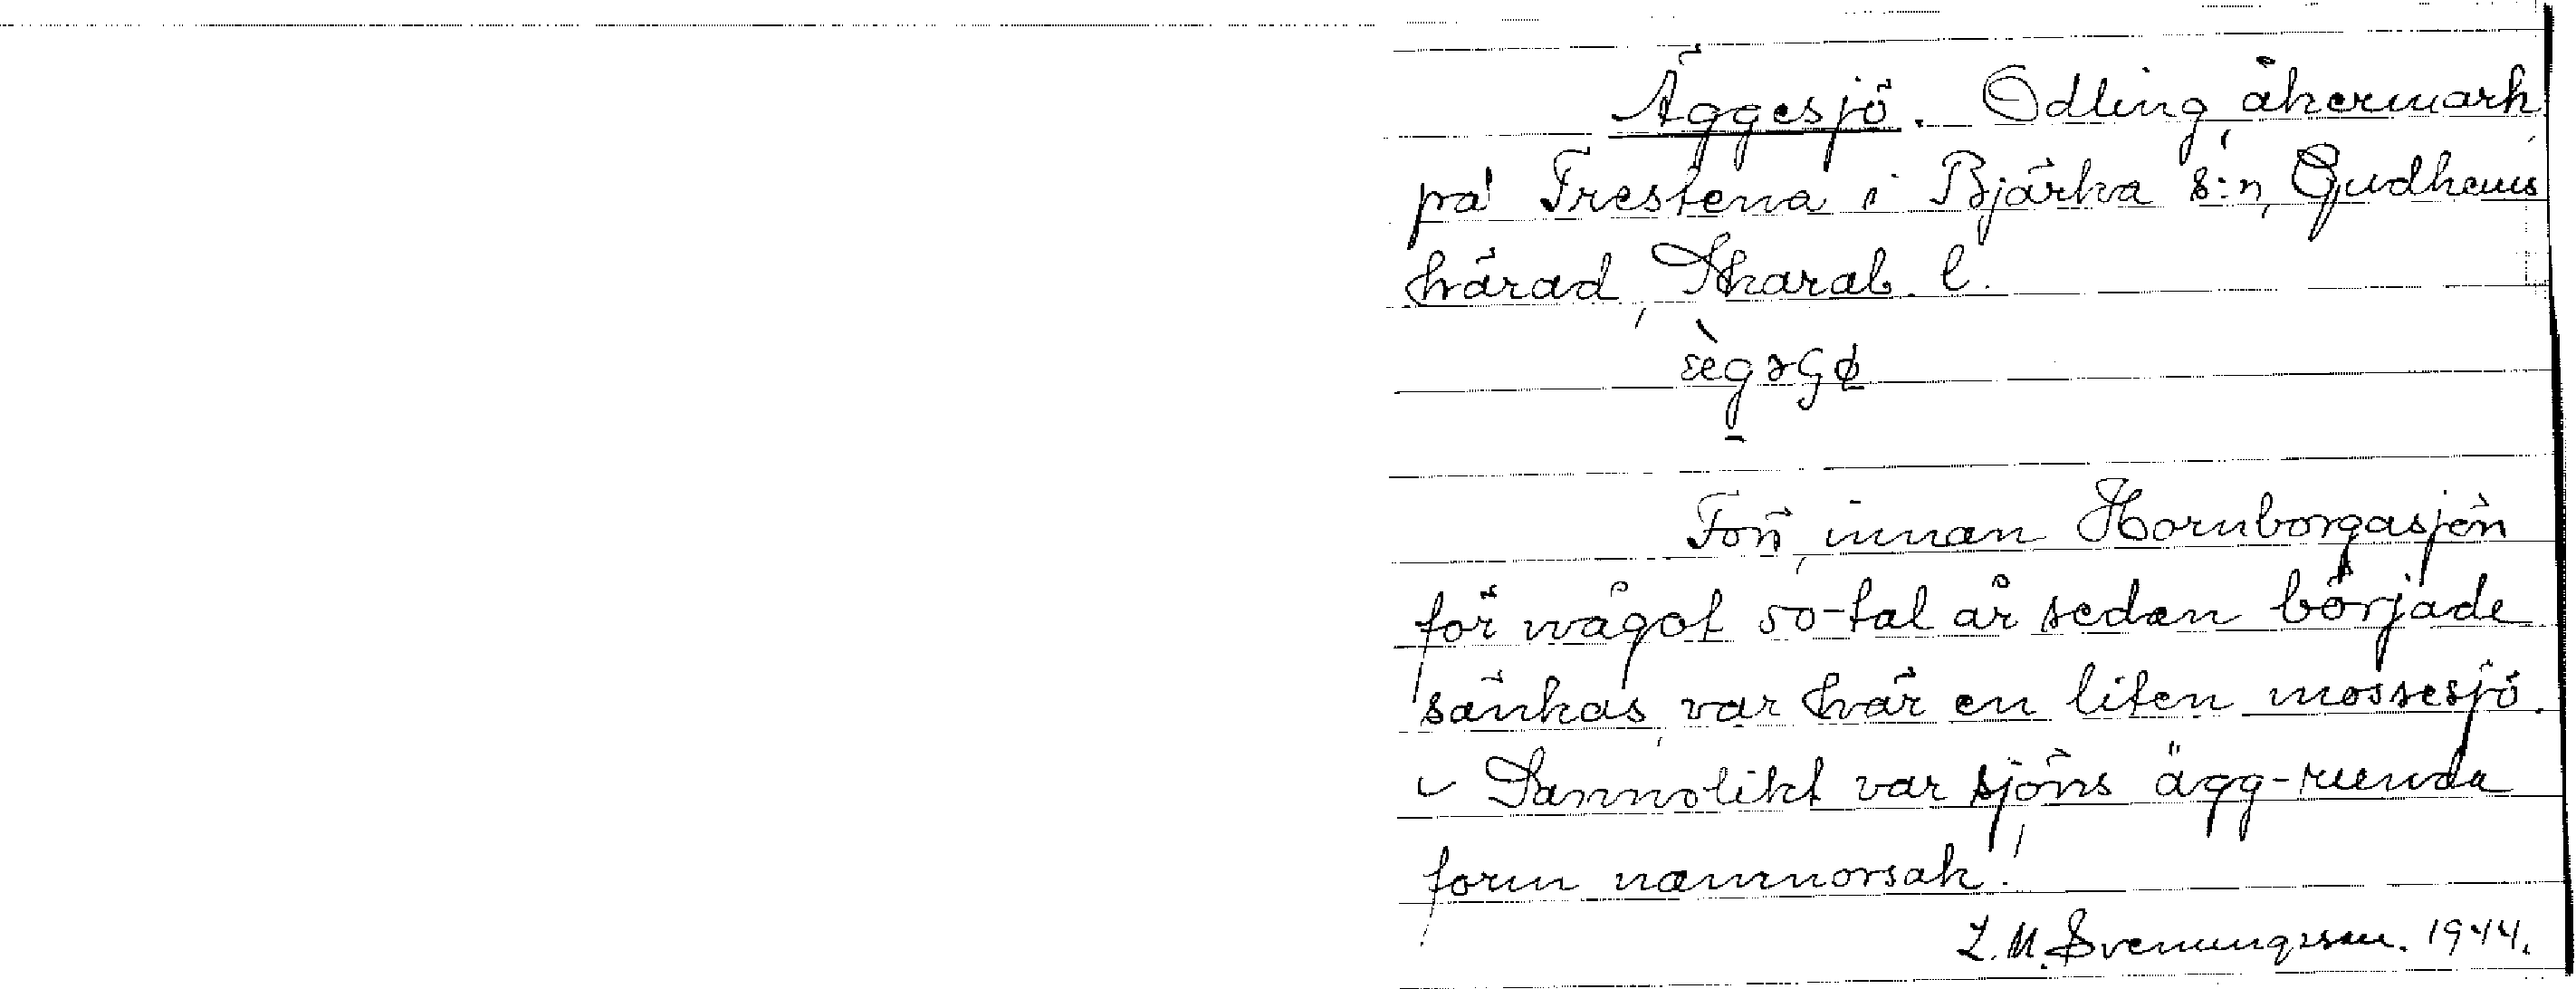 Äggesjö. Odling, åkermark
på Trestena i Bjärka s:n, Gudhems
härad, Skarab. l.
ὲgəςø
Förr, innan Hornborgasjön
för något 50-tal år sedan började
sänkas, var här en liten mossesjö.
Sannolikt var sjöns ägg-runda
form namnorsak!
L.M. Svenungsson. 1944.